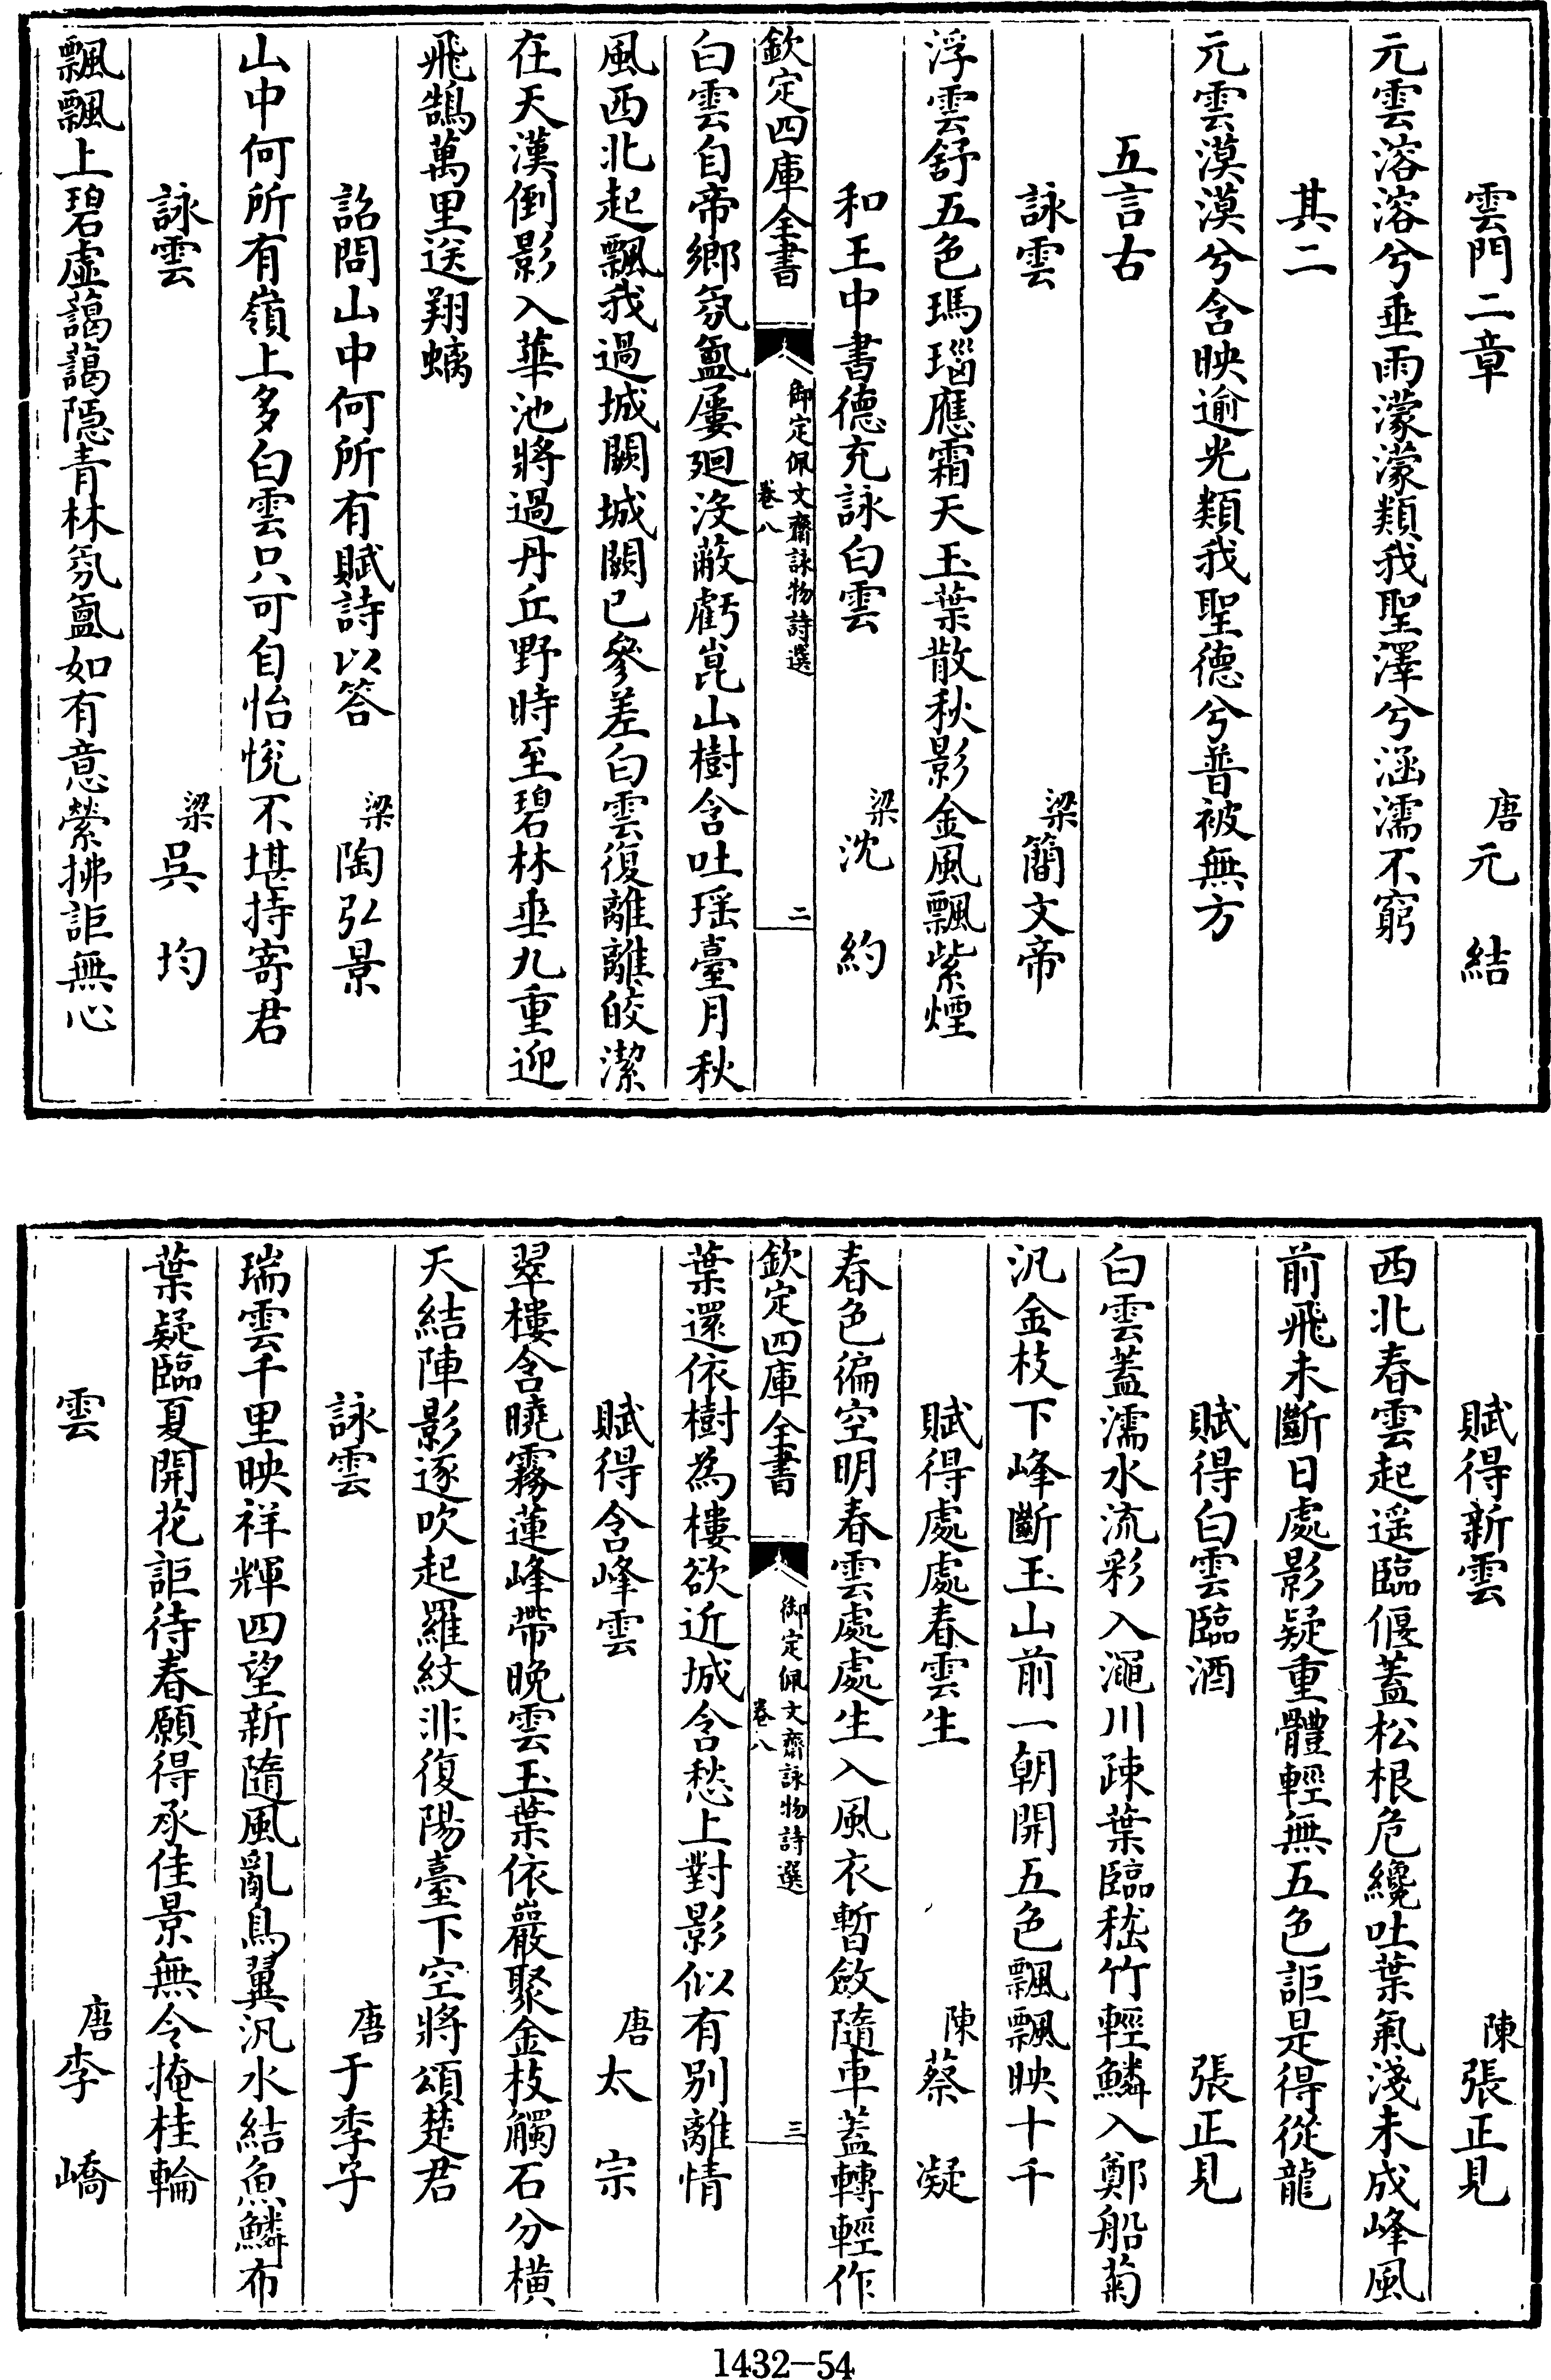 雲門二章 唐 元 結
元雲溶溶兮垂雨濛濛類我聖澤兮涵濡不窮
其二
元雲漠漠兮含映逾光類我聖德兮普被無方
五言古
詠雲 梁 簡文帝
浮雲舒五色瑪瑙應霜天玉葉散秋影金風飄紫煙
和王中書德充詠白雲 梁 沈 約
欽定四庫全書 御定佩文齋詠物詩選 卷八 二
白雲自帝鄉氛氳屢廻沒蔽虧崑山樹含吐瑶臺月秋
風西北起飄我過城闕城闕已參差白雲復離離皎潔
在天漢倒影入華池將過丹丘野時至碧林垂九重迎
飛鵠萬里送翔螭
詔問山中何所有賦詩以答 梁 陶弘景
山中何所有嶺上多白雲只可自怡悅不堪持寄君
詠雲 梁 吳 均
飄飄上碧虛藹藹隱青林氛氳如有意縈拂詎無心
賦得新雲 陳 張正見
西北春雲起遥臨偃蓋松根危纔吐葉氣淺未成峰風
前飛未斷日處影疑重體輕無五色詎是得從龍
賦得白雲臨酒 張正見
白雲蓋濡水流彩入澠川疎葉臨嵇竹輕鱗入鄭船菊
汎金枝下峰斷玉山前一朝開五色飄飄映十千
賦得處處春雲生 陳 蔡 凝
春色徧空明春雲處處生入風衣暫斂隨車蓋轉輕作
欽定四庫全書 御定佩文齋詠物詩選 卷八 三
葉還依樹為樓欲近城含愁上對影似有別離情
賦得含峰雲 唐 太 宗
翠樓含曉霧蓮峰帶晚雲玉葉依巖聚金枝觸石分橫
天結陣影逐吹起羅紋非復陽臺下空將頌楚君
詠雲 唐 于季子
瑞雲千里映祥輝四望新隨風亂鳥翼汎水結魚鱗布
葉疑臨夏開花詎待春願得承佳景無令掩桂輪
雲 唐 李 嶠
1432-54